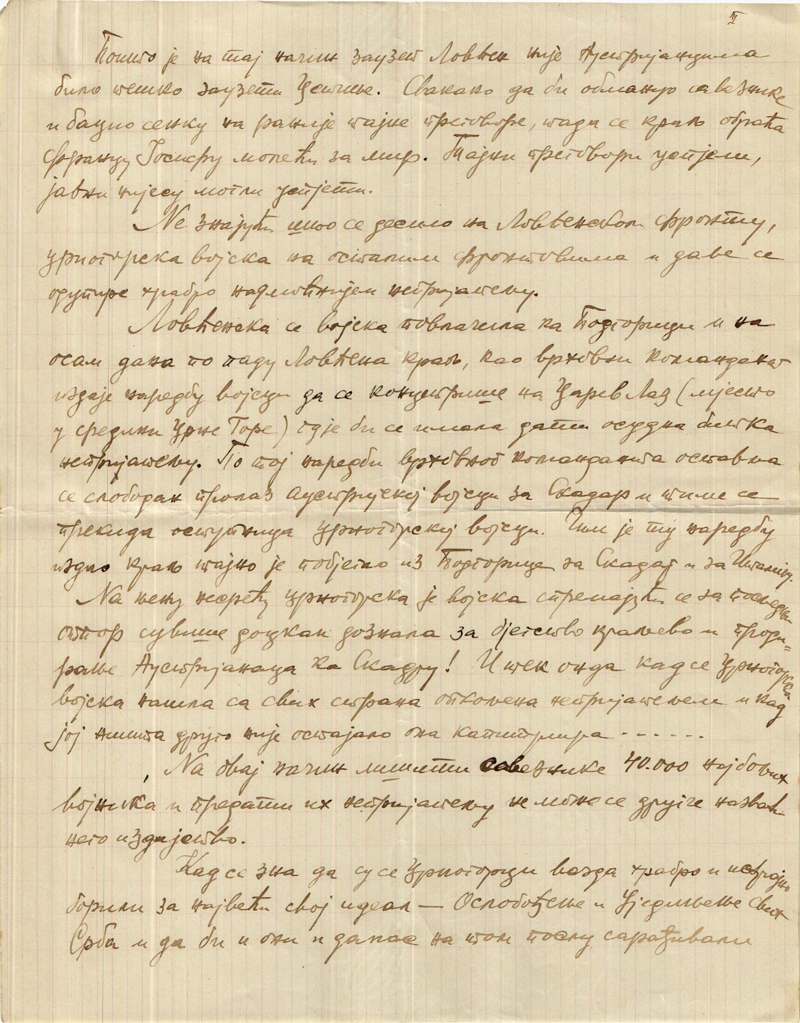 II
Пошто је на тај начин заузет Ловћен није Аустријанцима
било тешко заузети Цетиње. Свакако да би обмануо савезнике
и бацио сенку на раније тајне преговоре, тада се краљ обраћа
Францу Јосифу молећи за мир. Тајни преговори успјели,
јавни нијесу могли успјети.
Не знајући што се десило на Ловћенском фронту,
црногорска војска на осталим фронтовима и даље се
одупире храбро надмоћнијем непријатељу.
Ловћенска се војска повлачила ка Подгорици и на
осам дана по паду Ловћена краљ, као врховни командант
издаје наредбу војсци да се концентрише на Царев Лаз (мјесто
у средини Црне Горе) гдје би се имала дати осудна битка
непријатељу. По тој наредби врховног команданта оставља
се слободан пролаз аустријској војсци за Скадар и тиме се
прекида отступница црногорској војсци. Чим је ту наредбу
издао краљ тајно је побјегао из Подгорице за Скадар и за Италију.
На њену несрећу црногорска је војска спремајући се за последњи
отпор сувише доцкан дознала за бјегство краљево и проди-
рање Аустријанаца ка Скадру! И тек онда кад се Црногорска
војска нашла са свих страна опкољена непријатељем и кад
јој ништа друго није остајало она капитулира - - - - - -
На овај начин лишити савезнике 40.000 најбољих
војника и предати их непријатељу не може се друге назвати
него издајство.
Кад се зна да су се Црногорци вазда храбро и
борили за највећи свој идеал — Ослобођење и Уједињење свих
Срба и да би и они и данас на том послу сарађивали